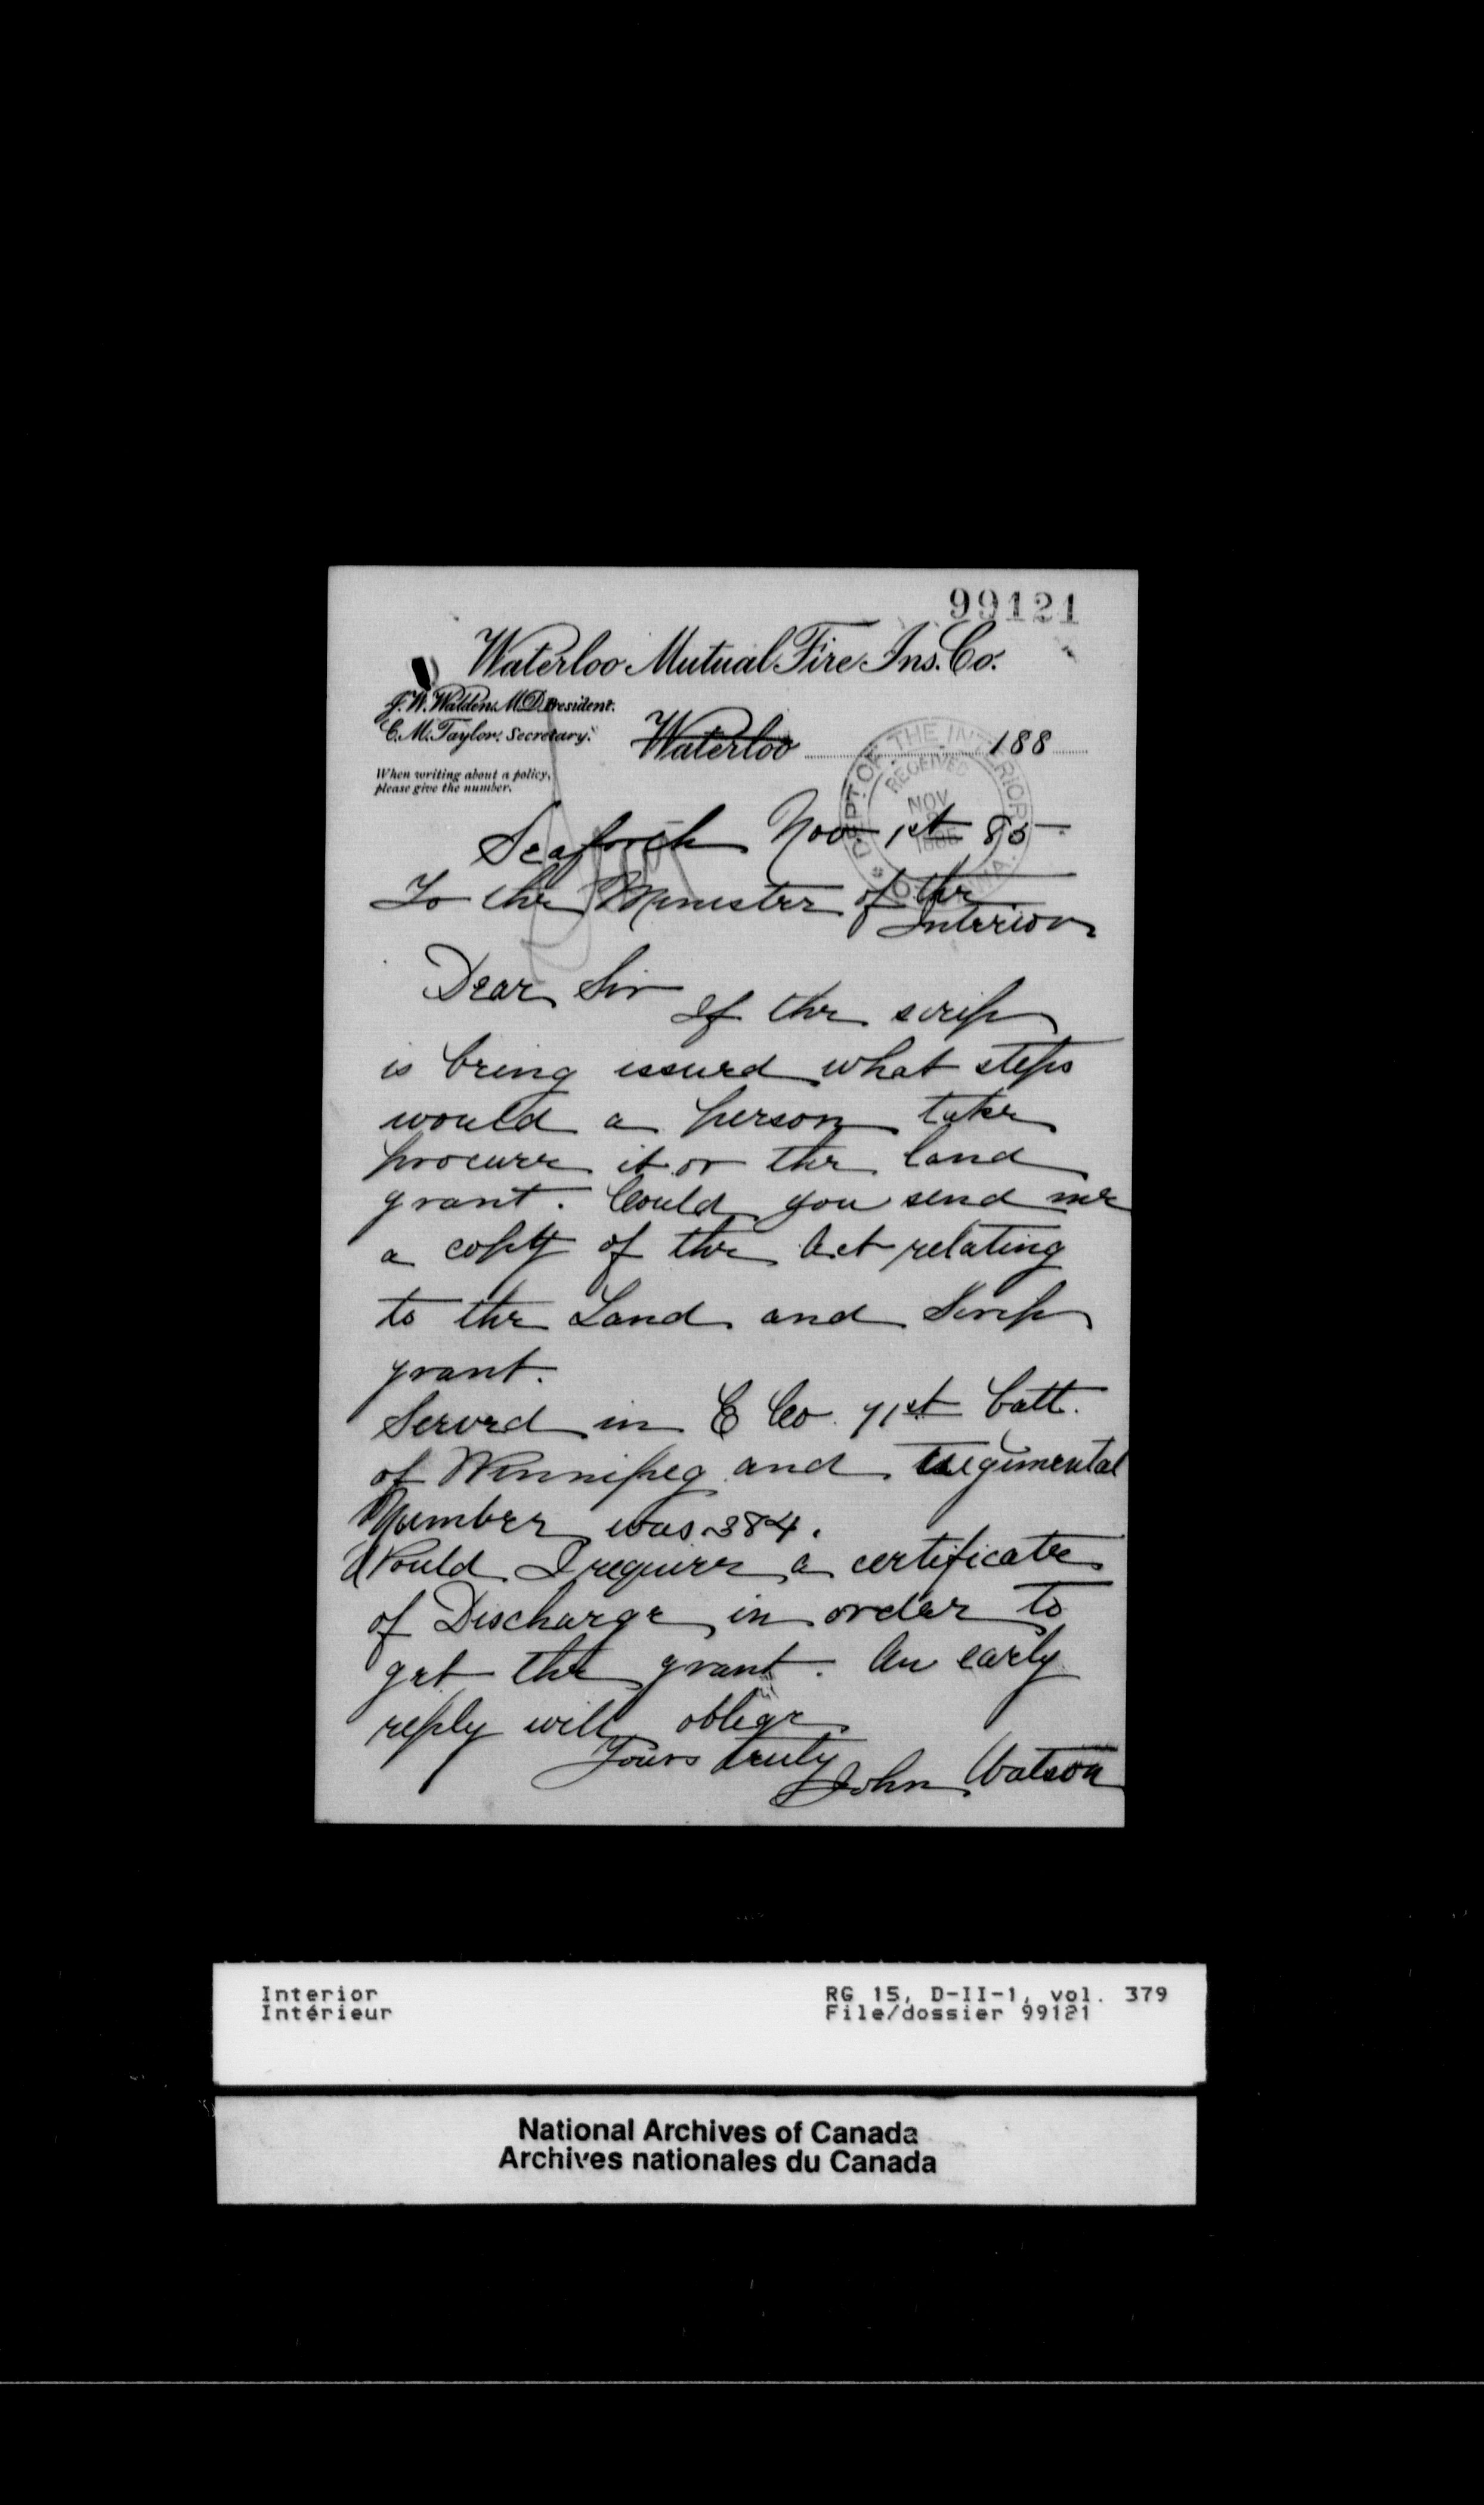 99121
Waterloo Mutual Fire Ins. Co.
J. W. Walden. M.D. President.
C. M. Taylor. Secretary.
Waterloo 188
When writing about a policy,
please give the number.
DEPT. OF THE INTERIOR
RECEIVED
NOV
1885
OTTAWA.
Seaforth Nov 1st 85
To the Minister of the
Interior
Dear Sir
If the scrip
is being issued what steps
would a person take
procure it or the land
grant. Could you send me
a copy of the Act relating
to the Land and Scrip
grant.
Served in E Co. 91st Batt.
of Winnipeg and regimental
Number was 384.
Would I require a certificate
of Discharge in order to
get the grant. An early
reply will oblige
Yours truly
John Watson
Interior RG 15, D-II-1, vol. 379
Intérieur File/dossier 99121
National Archives of Canada
Archives nationales du Canada